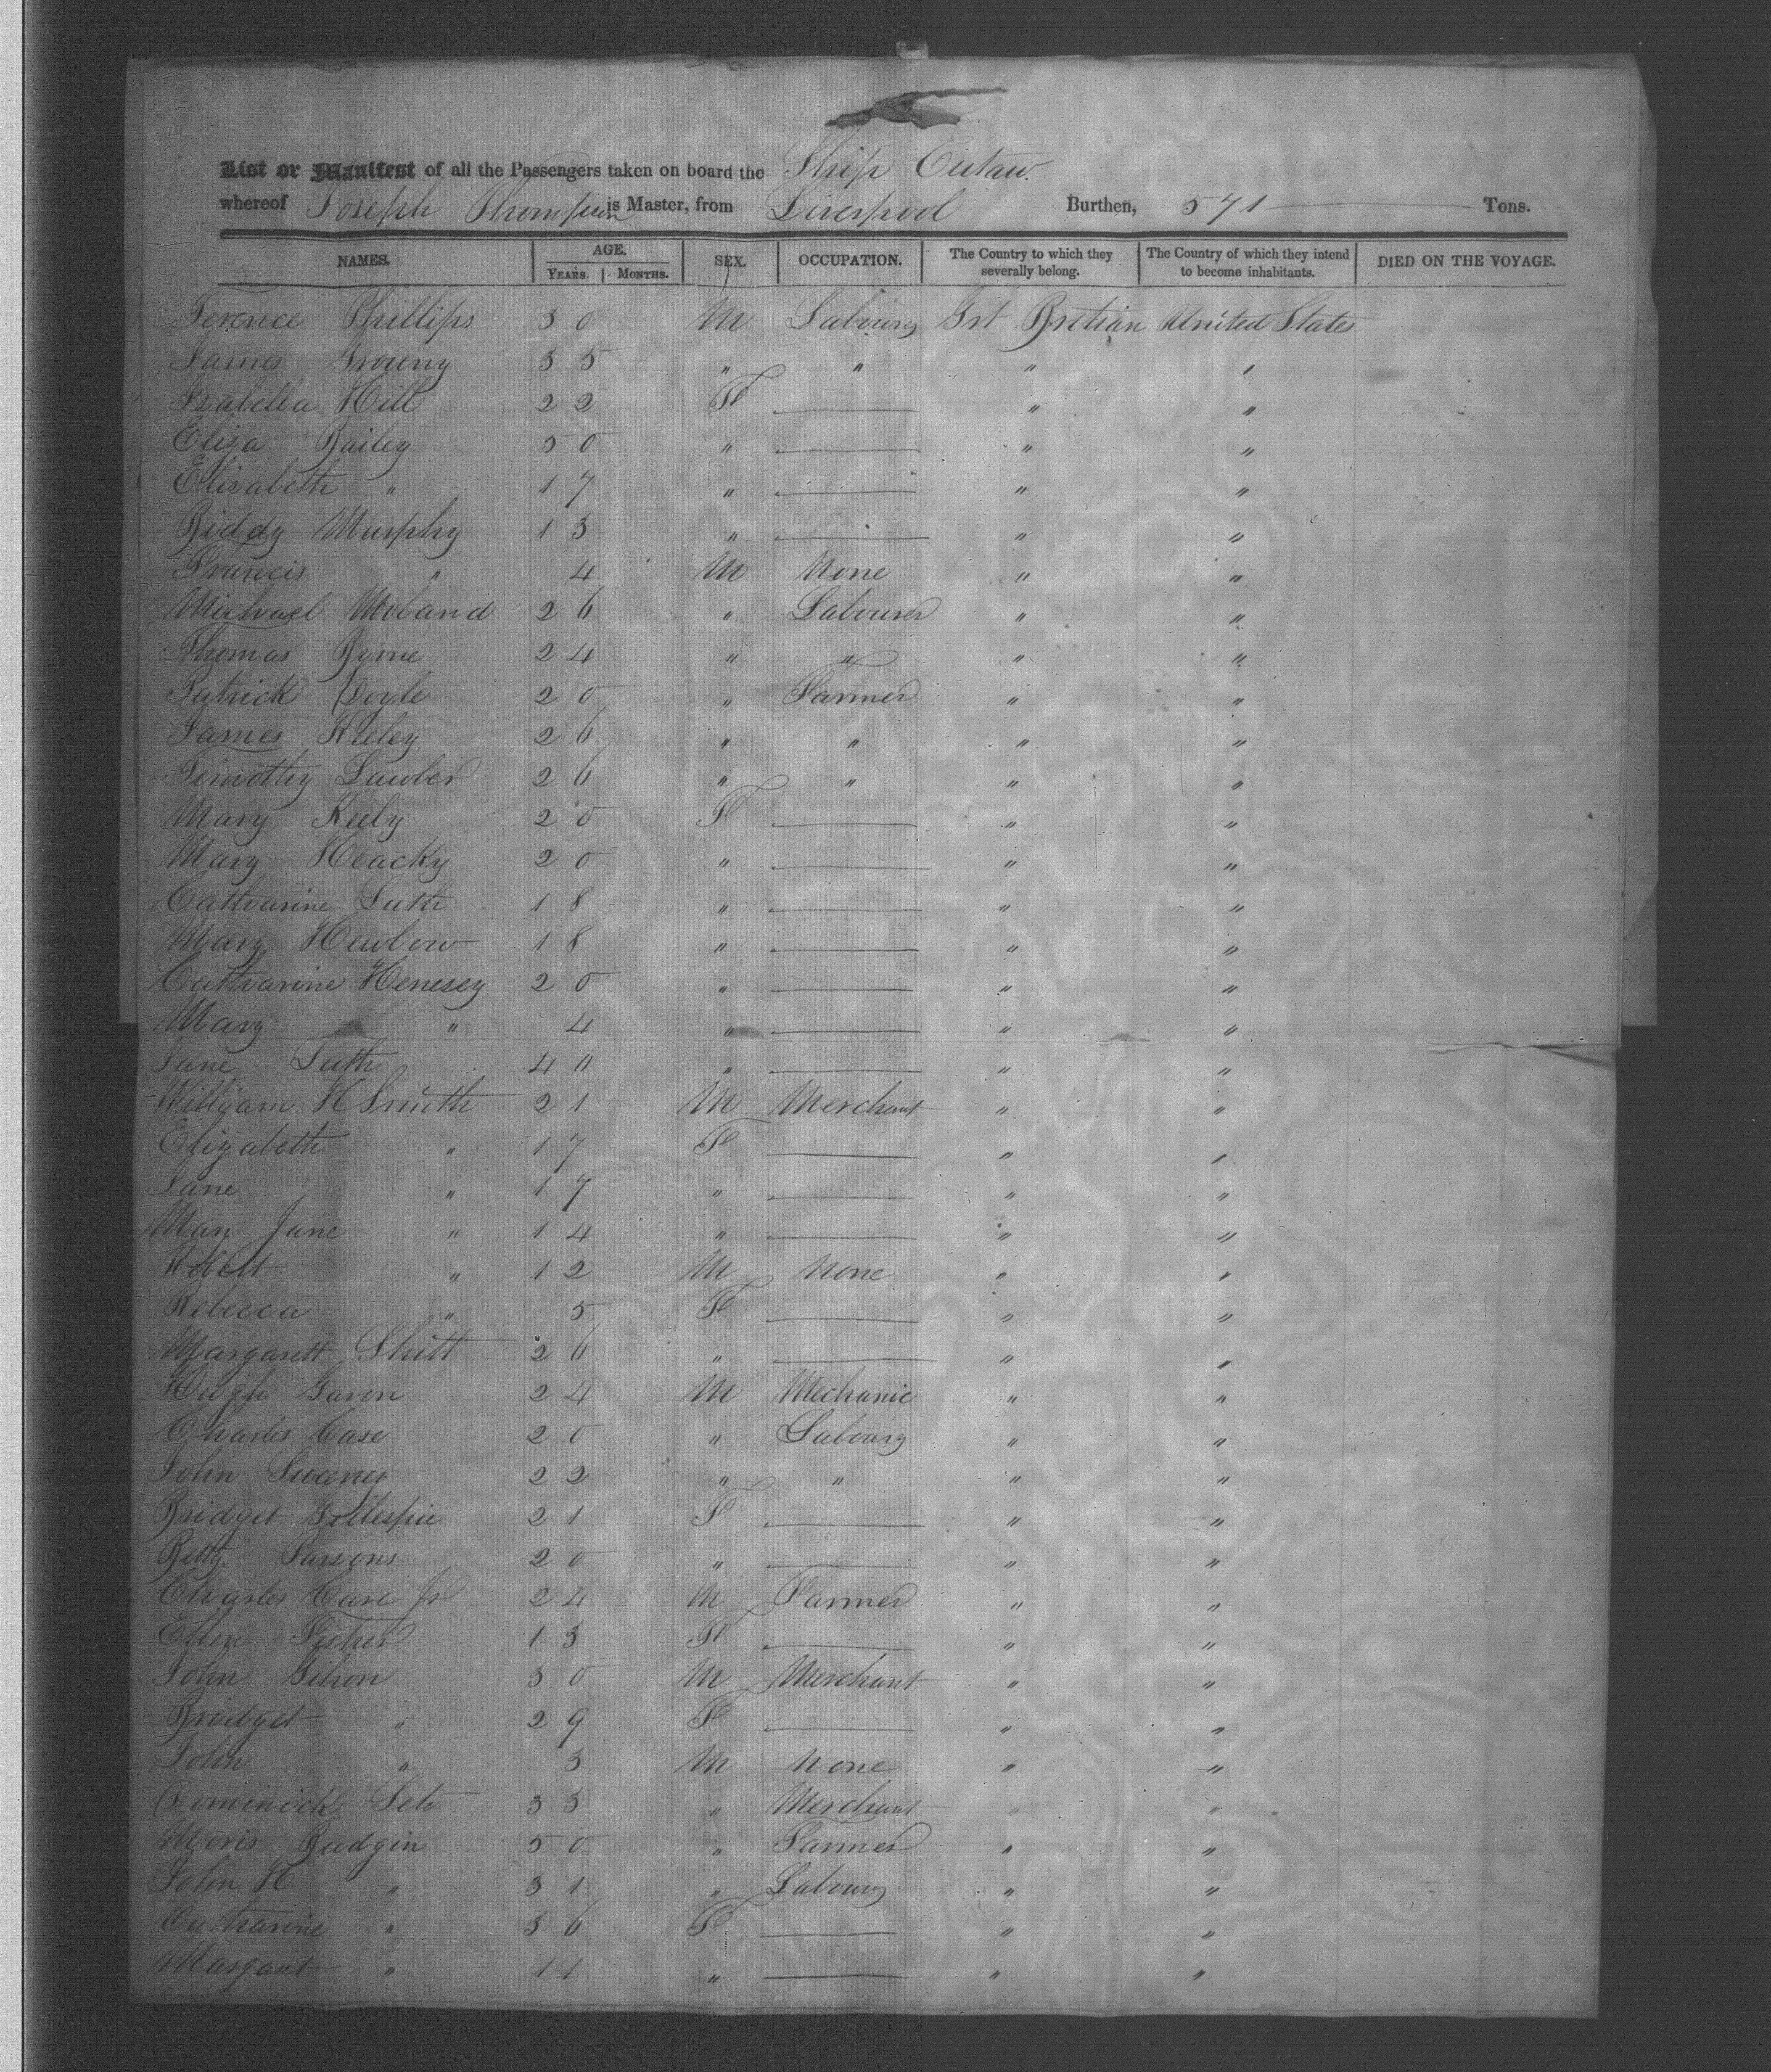 List or Manifest of all the Passengers taken on board the Ship Eutaw.
whereof Joseph Thompson is Master, from Liverpool Burthen, 571 Tons.
NAMES. AGE. YEARS. MONTHS. SEX. OCCUPATION. The Country to which they severally belong. The Country of which they intend to become inhabitants. DIED ON THE VOYAGE.
Terence Phillips 30 M Labourer Grt Bretian United States
James 35 " " " "
Isabella Hill 22 F " "
Eliza Bailey 50 " " "
Elisabeth " 17 " " "
Biddy Murphy 13 " " "
Francis " 4 M None " "
Michael 26 " Labourer " "
Thomas Byrne 24 " " " "
Patrick Doyle 20 " Farmer " "
James Kieley 26 " " " "
Timothy Lawler 26 " " " "
Mary Keely 20 F " "
Mary Heacky 20 " " "
Catharine 18 " " "
Mary Hewlow 18 " " "
Catharine Henesey 20 " " "
Mary " 4 " " "
Jane 40 " " "
William H Smith 21 M Merchant " "
Elizabeth " 17 F " "
Jane " 17 " " "
Mary Jane " 14 " " "
Robert " 12 M None " "
Rebecca " 5 F " "
Margarett 26 " " "
Hugh Garon 24 M Mechanic " "
Charles Case 20 " Labourg " "
John Sweeney 22 " " " "
Bridget Gillespie 21 F " "
Betty Parsons 20 " " "
Charles Case Jr 24 M Farmer " "
Ellen Fisher 13 F " "
John Gibson 30 M Merchant " "
Bridget " 29 F " "
John " 3 M None " "
Dominick 33 " Merchant " "
Moris Budgin 50 " Farmer " "
John H " 31 " Labourg " "
Catharine " 36 F " "
Margaret " 11 " " "